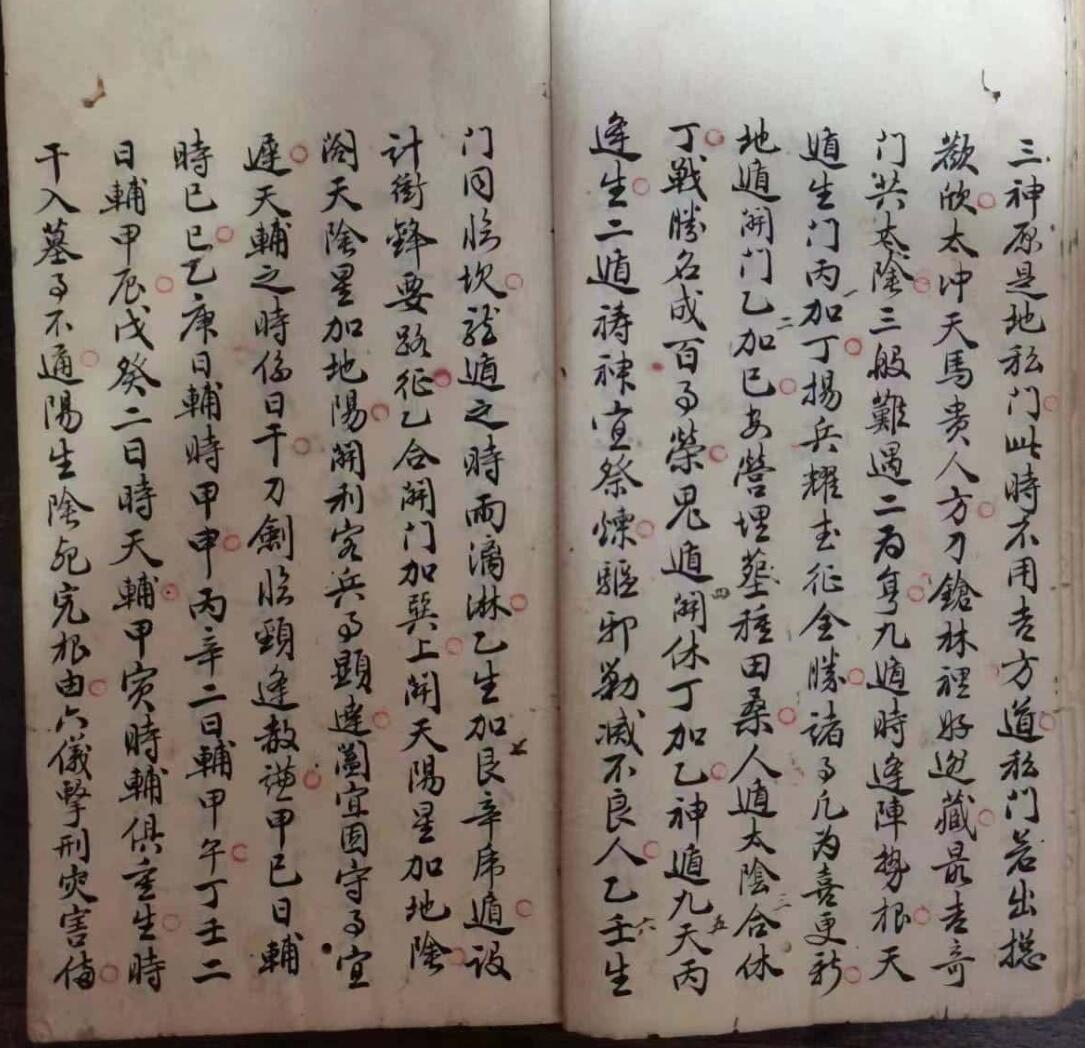 三神原是地私门此時不用吉方道私门若出揔
歡欣太冲天馬贵人方刀鎗林裡好逃藏最吉奇
门共太陰三般難遇二为身九遁時逢陣勢根天
遁生门丙加丁揚兵耀武征全勝諸事凡为喜更新
地遁開门乙加巳安營埋墓種田桑人遁太陰合休
丁戰勝名成百事榮鬼遁開休丁加乙神遁九天丙
逢生二遁祷神宜祭煉驅邪勦滅不良人乙壬生
门同臨坎龍遁之時雨滴淋乙生加艮辛虎遁設
计衝鋒要路征乙合開门加巽上開天陽星加地陰
阁天陰星加地陽開利客兵事顯達阖宜固守事宜
遲天輔之時係日干刀劍臨頸逢赦謹甲巳日輔
時巳巳乙庚日輔時甲申丙辛二日輔甲午丁壬二
日輔甲辰戊癸二日時天輔甲寅時輔俱重生時
干入墓事不通陽生陰死究根由六儀擊刑灾害俻
一
二
三
四
五
六
七